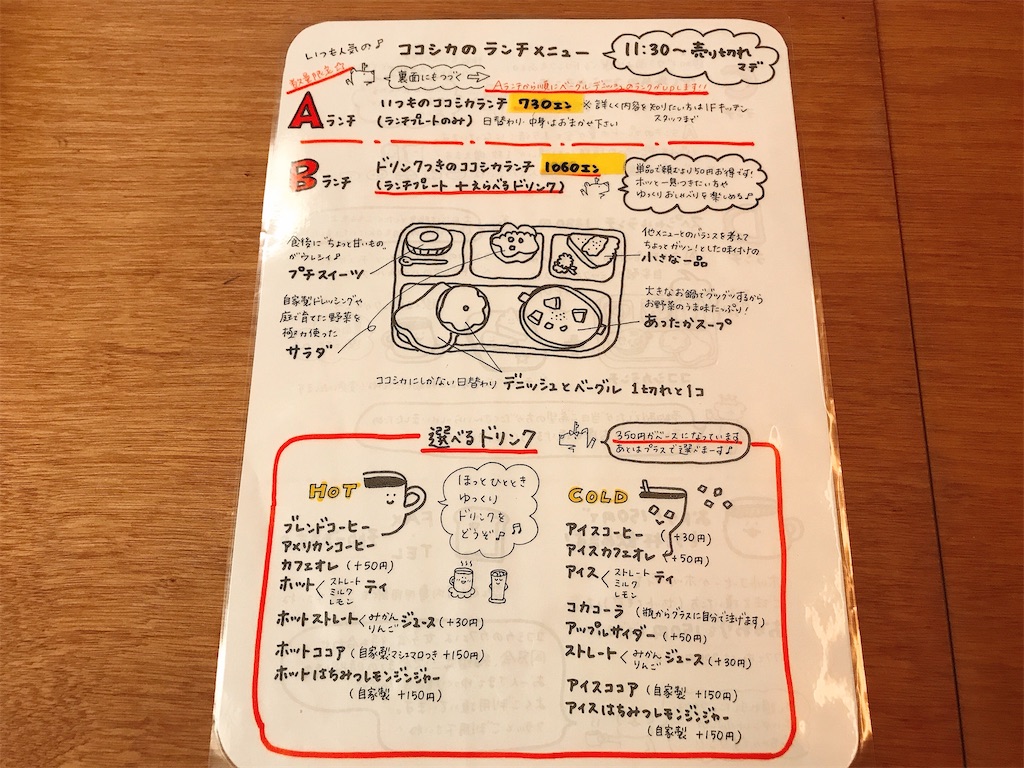 いつも人気の♪
ココシカの ランチメニュー
11:30〜売り切れ
マデ
数量限定☆
裏面にもつづく
Aランチから順にベーグル デニッシュのランクがupします!!
Aランチ
いつものココシカランチ 730エン
※詳しく内容を知りたい方は1Fキッチン
スタッフまで
(ランチプレートのみ) 日替わり・中身はおまかせ下さい
Bランチ
ドリンクつきのココシカランチ 1060エン
(ランチプレート + えらべるドリンク)
単品で頼むより50円お得です!
ホッと一息つきたい方や
ゆっくりおしゃべりを楽しめる♪
食後に"ちょっと甘いもの
がウレシイ♪
プチスイーツ
他メニューとのバランスを考えて
ちょっとガツン!とした味付けの
小さな一品
自家製ドレッシングや
庭で育てた野菜を
極力使った
サラダ
大きなお鍋でグツグツするから
お野菜のうま味たっぷり!
あったかスープ
ココシカにしかない日替わり デニッシュとベーグル 1切れと1コ
選べるドリンク
350円がベースになっています
あとはプラスで選べまーす♪
HOT
ブレンドコーヒー
アメリカンコーヒー
カフェオレ (+50円)
ホット ストレート ミルク レモン ティ
ホットストレート みかん りんご ジュース (+30円)
ホットココア (自家製マシュマロつき +150円)
ホットはちみつレモンジンジャー
(自家製 +150円)
ほっとひととき
ゆっくり
ドリンクを
どうぞ♪
COLD
アイスコーヒー (+30円)
アイスカフェオレ (+50円)
アイス ストレート ミルク レモン ティ
コカコーラ (瓶からグラスに自分で注げます)
アップルサイダー (+50円)
ストレート みかん りんご ジュース (+30円)
アイスココア (自家製 +150円)
アイスはちみつレモンジンジャー
(自家製 +150円)